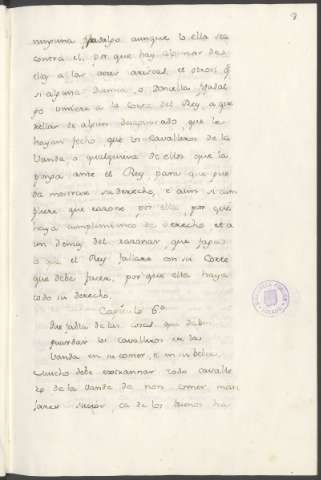 ninguna fijadalgo aunque lo ella sea
contra el, por que hay algunas dos
ellas a las veces ariscas. et otrosi q̃
si alguna Duenna, o Doncella fijadal
go viniere a la Corte del Rey, a que
rellar de algun desaguisado, que le
hayan fecho que los Cavalleros de la
Vanda o qualquiera de ellos que la
ponga ante el Rey, para que pue
da mostrar su derecho, e aun si com
pliere que razone por ella, por que
haya complimiento de derecho et a
un demas del razonar, que fagan
o que el Rey fallare con su Corte
que debe facer, por que ella haya
todo su derecho.
Capitulo 6º
Que falta de las cosas, que deben
guardar los cavalleros en la
Vanda en su comer, e en su beber.
Mucho debe estrannar todo cavalle
ro de la Vanda de non comer man
jares sucios, ca de los buenos ha